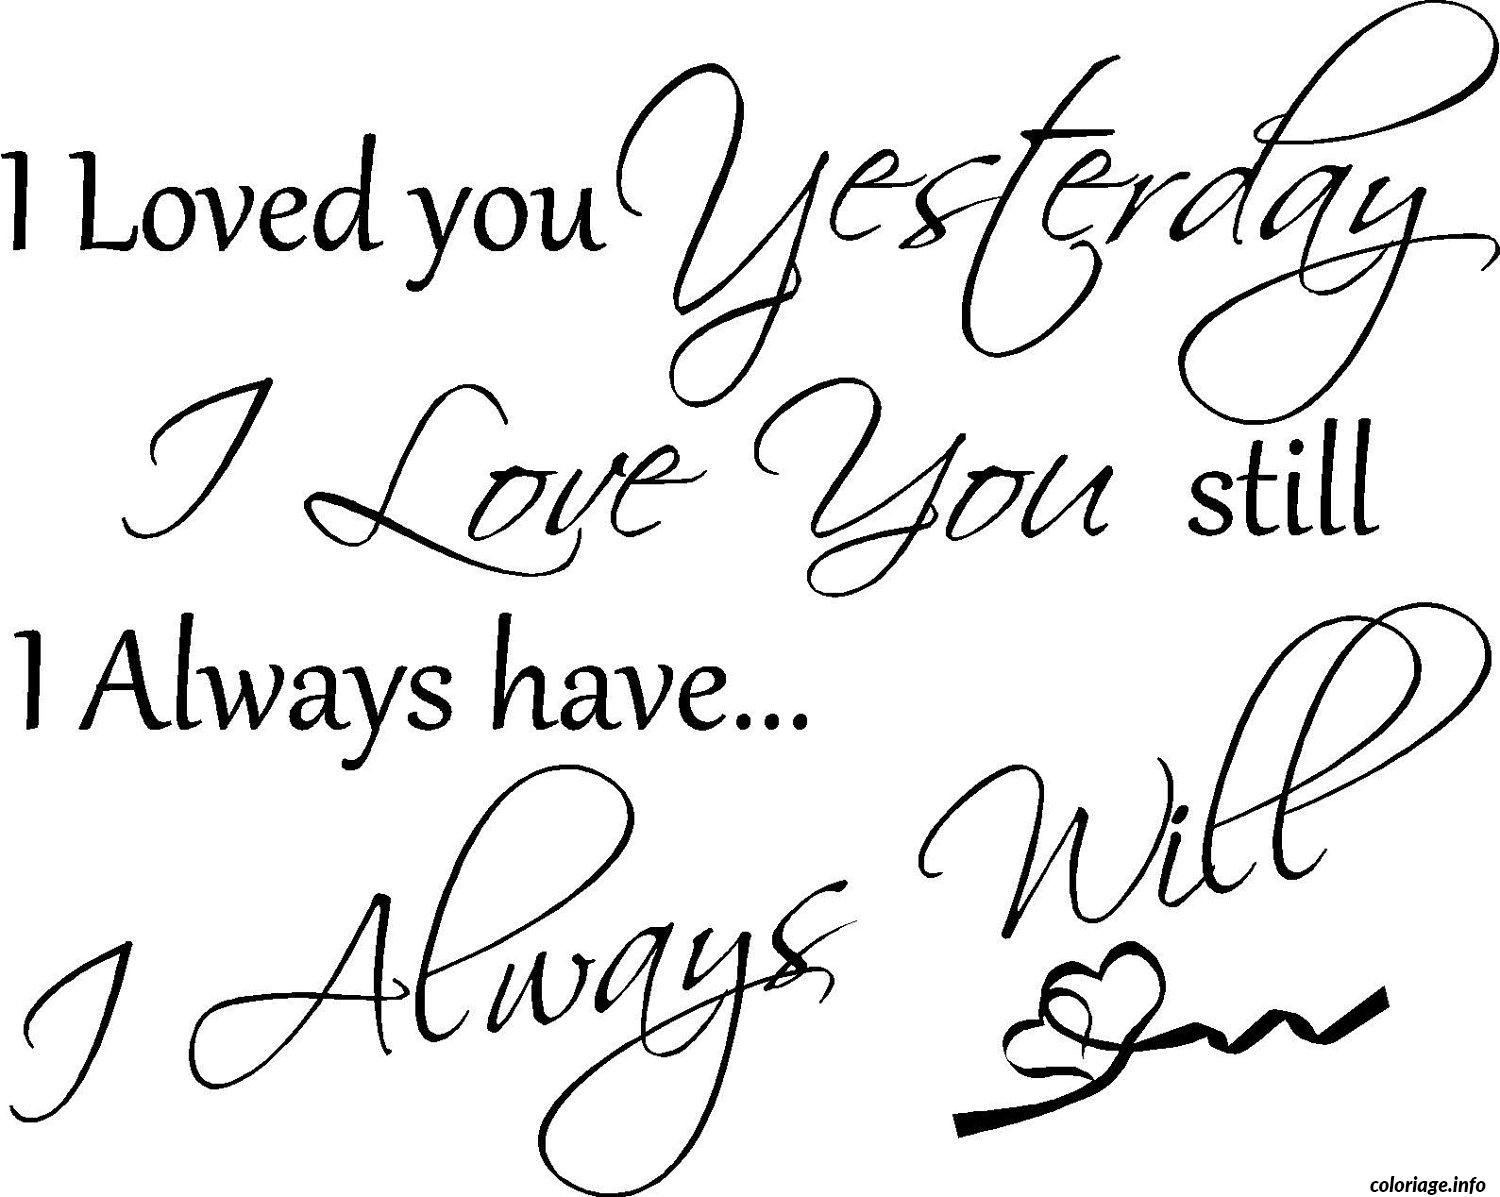 I Loved you Yesterday
I Love You still
I Always have...
I Always Will
coloriage.info